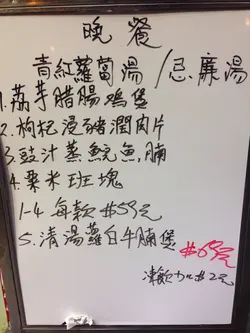 晚餐
青紅蘿蔔湯/忌廉湯
1.荔芋腊腸鳮煲
2.枸杞浸豬潤肉片
3.豉汁蒸鯇魚腩
4.粟米班塊
1-4 每款 $59元
5.清湯蘿白牛腩煲
$69元
凍飲加$2元